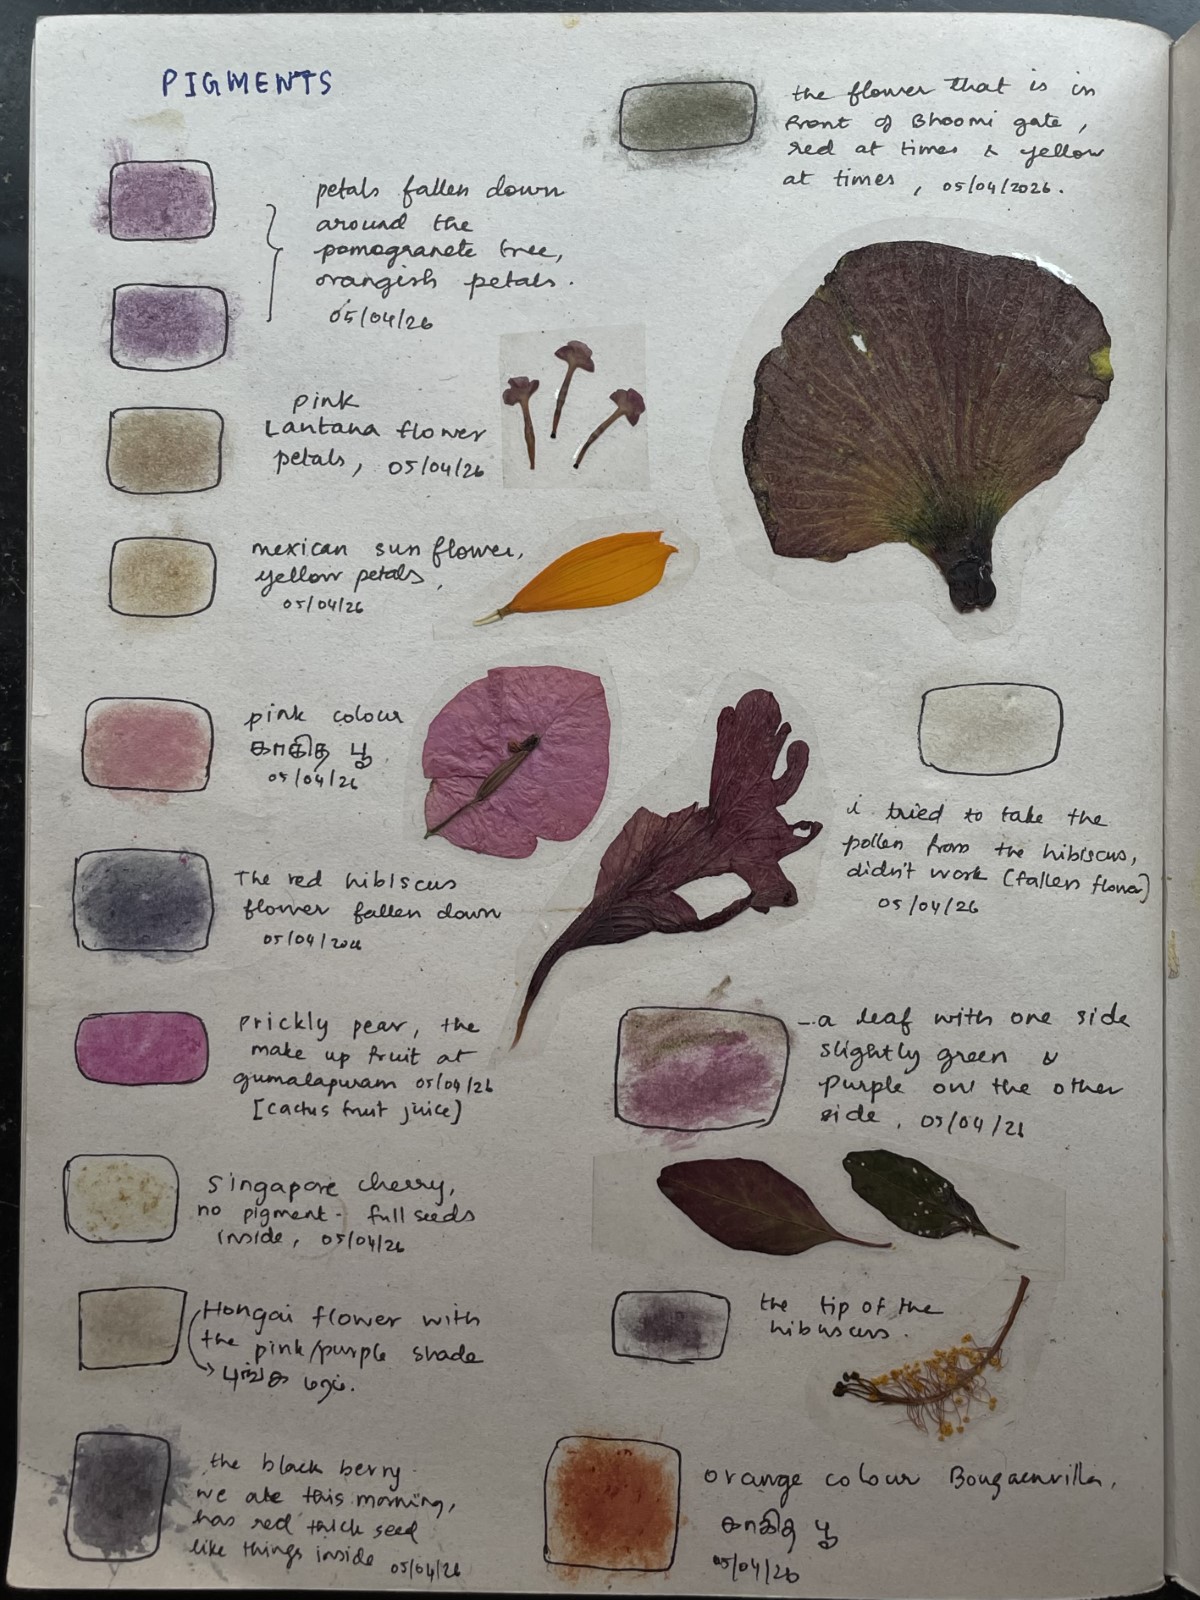 PIGMENTS
petals fallen down
around the
pomogranete tree,
orangish petals.
05/04/26
pink
Lantana flower
petals, 05/04/26
mexican sun flower,
yellow petals,
05/04/26
pink colour
காகித பூ
05/04/26
The red hibiscus
flower fallen down
05/04/2026
Prickly pear, the
make up fruit at
gumalapuram 05/04/26
[cactus fruit juice]
Singapore cherry,
no pigment - full seeds
inside, 05/04/26
Hongai flower with
the pink/purple shade
புங்க மரம்.
the black berry
we ate this morning,
has red thick seed
like things inside 05/04/26
the flower that is in
front of Bhoomi gate,
red at times & yellow
at times, 05/04/2026.
i tried to take the
pollen from the hibiscus,
didn't work (fallen flower)
05/04/26
a leaf with one side
slightly green &
purple on the other
side, 05/04/26
the tip of the
hibuscus.
orange colour Bougaenvilla,
காகித பூ
05/04/26